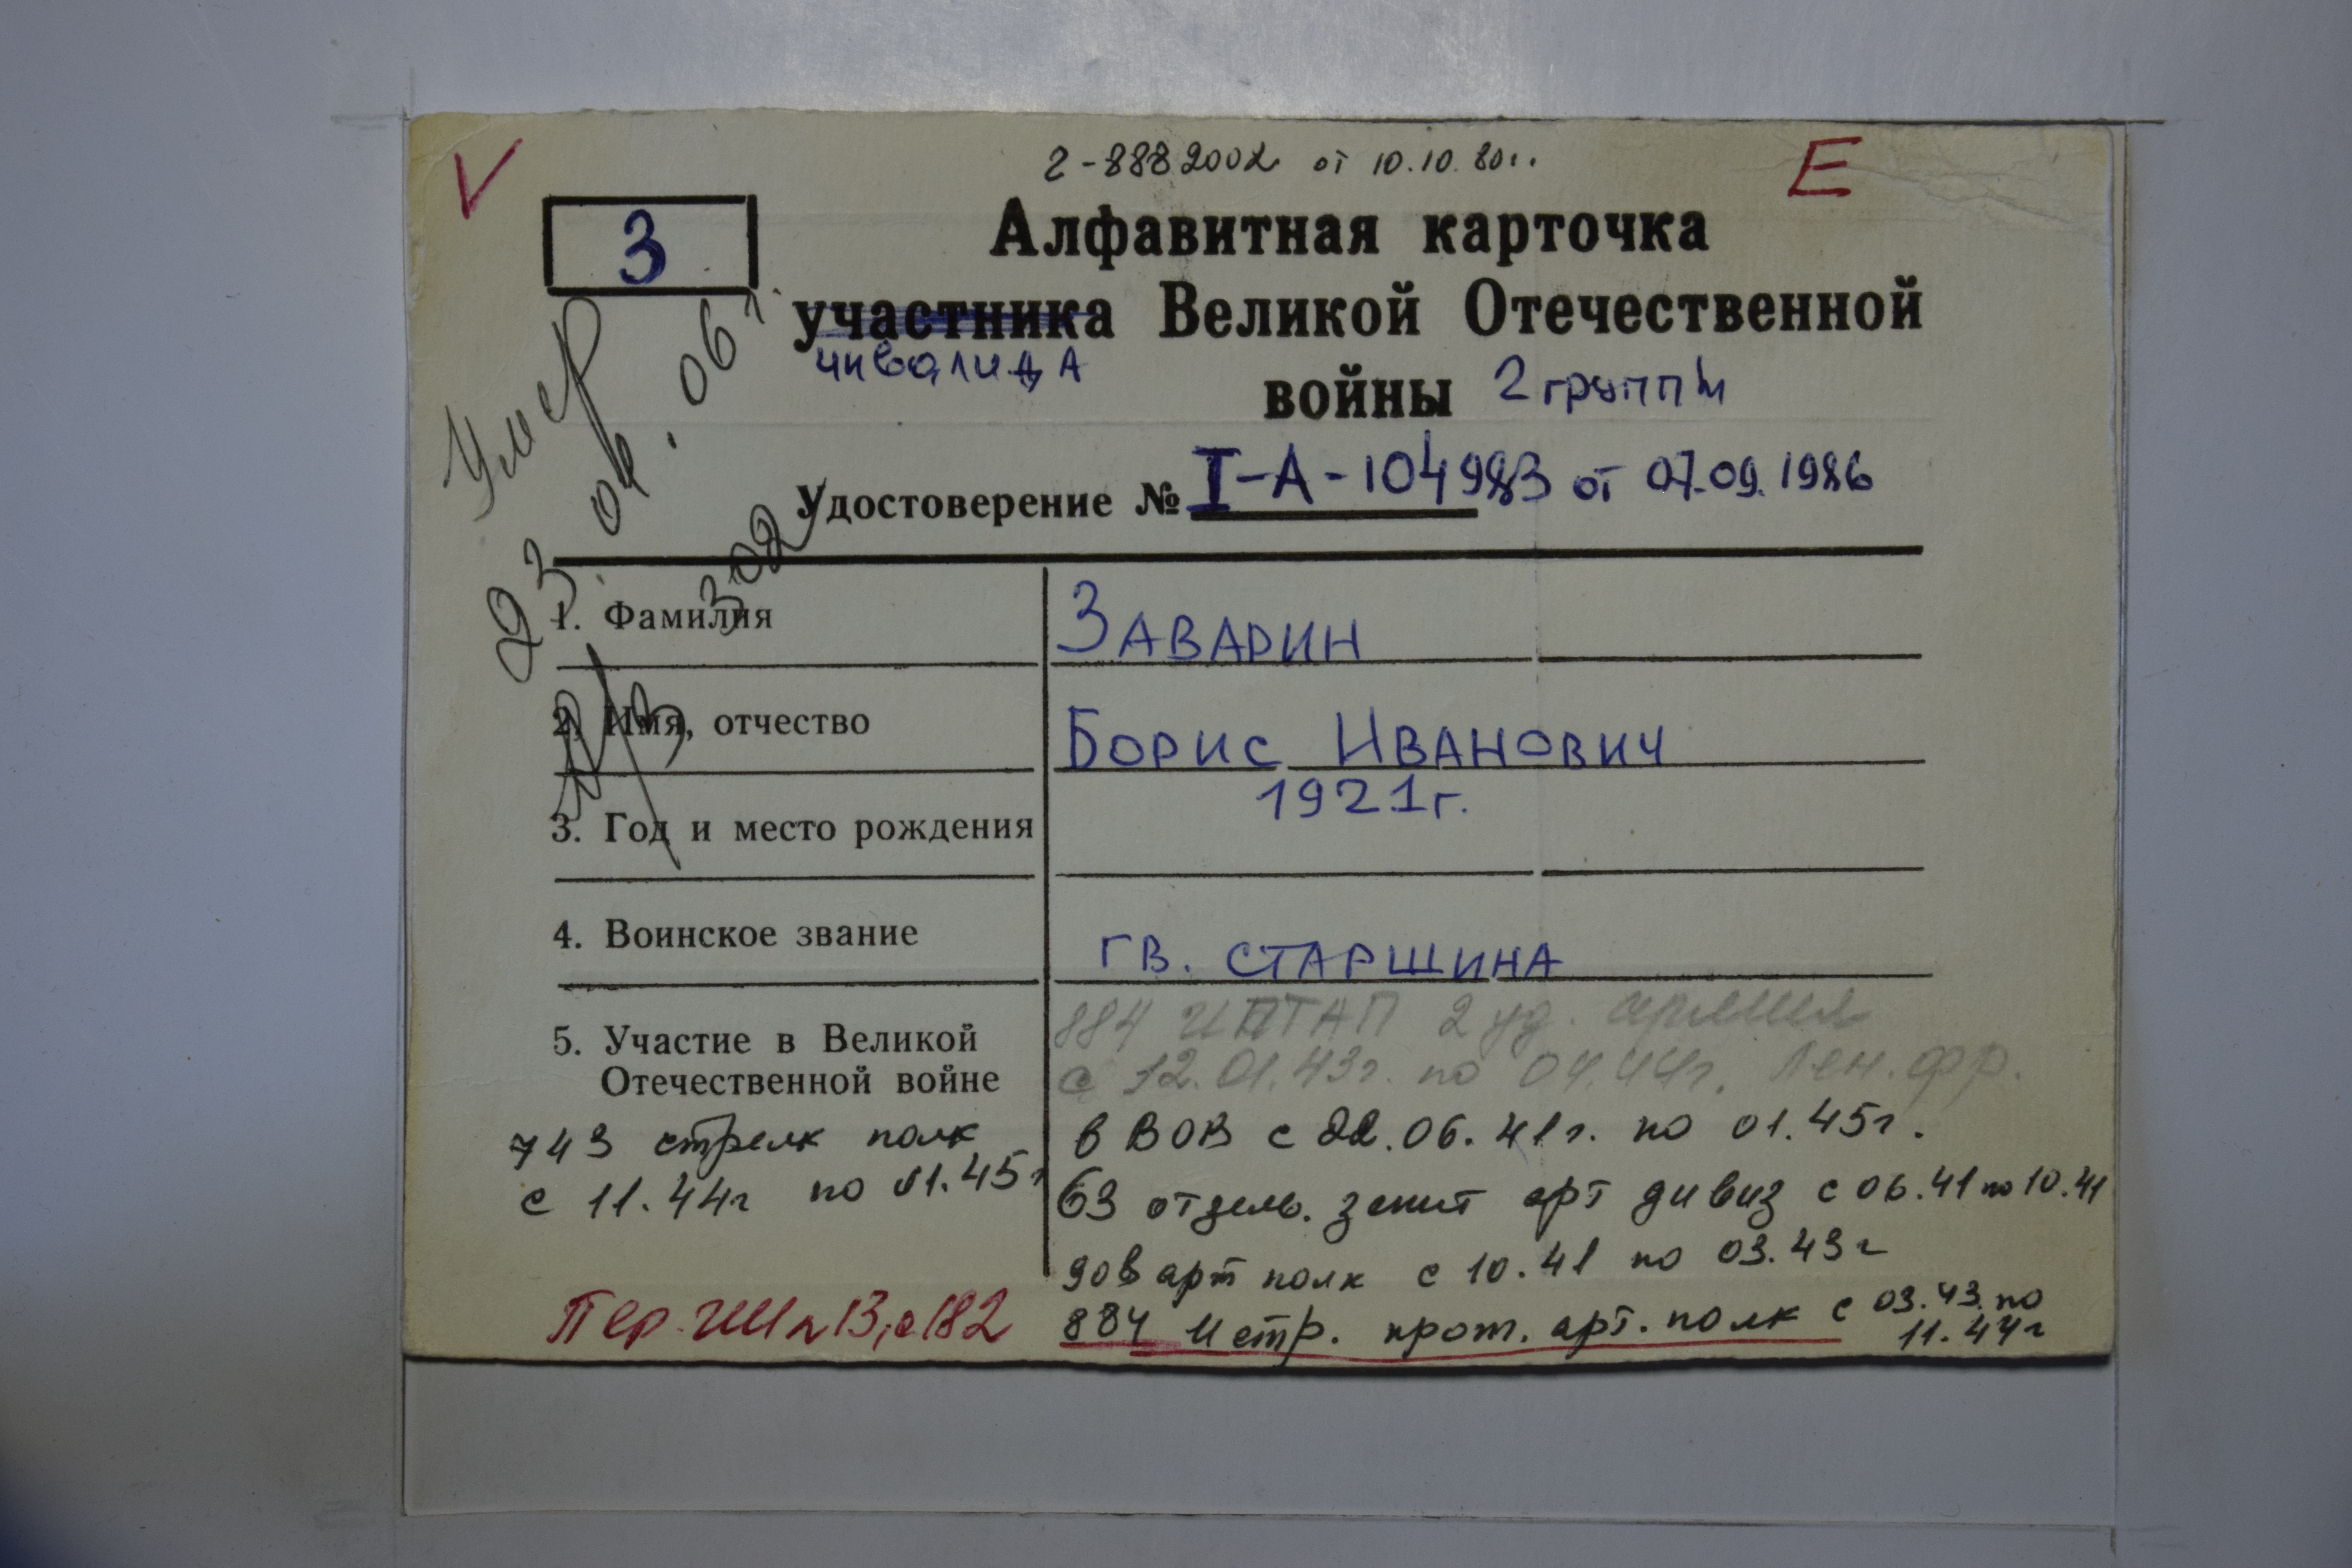 V
Г-8882002 от 10.10.80г.
Е
3
Алфавитная карточка
участника Великой Отечественной
инвалида
войны 2 группы
Удостоверение № I-А-104983 от 07.09.1986
Умер
23.04.06г.
1. Фамилия
Заварин
2. Имя, отчество
Борис Иванович
3. Год и место рождения
1921г.
4. Воинское звание
гв. старшина
5. Участие в Великой
Отечественной войне
884 ИПТАП 2 уд. армия
с 12.01.43г. по 04.44г. Лен. фр.
в ВОВ с 22.06.41г. по 01.45г.
63 отдель. зенит арт дивиз с 06.41 по 10.41
908 арт полк с 10.41 по 03.43г
884 истр. прот. арт. полк с 03.43 по
11.44г
743 стрелк полк
с 11.44г по 01.45г